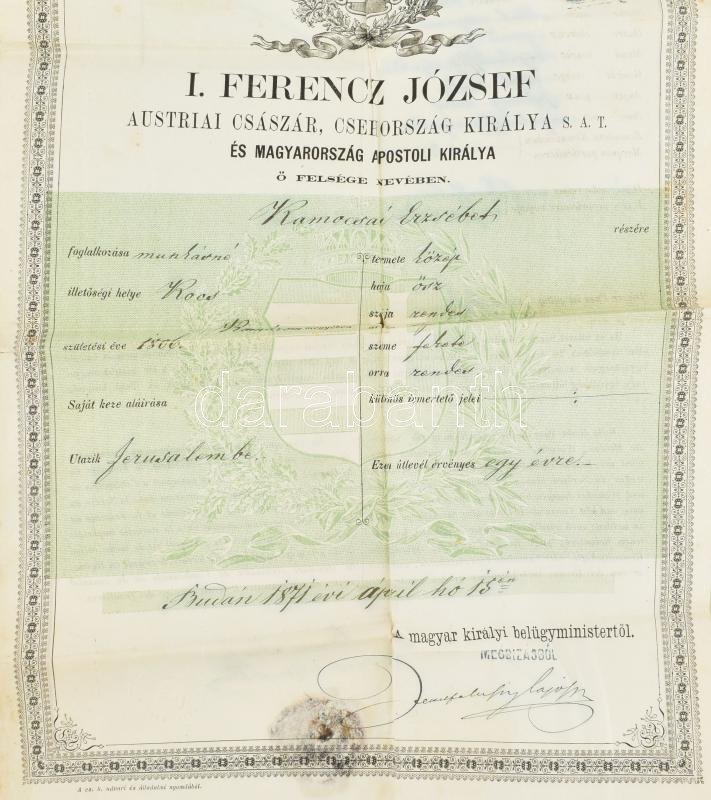 I. FERENCZ JÓZSEF
AUSTRIAI CSÁSZÁR, CSEHORSZÁG KIRÁLYA S. A. T.
ÉS MAGYARORSZÁG APOSTOLI KIRÁLYA
Ő FELSÉGE NEVÉBEN.
Kamocsai Erzsébet részére
foglalkozása munkásnő
illetőségi helye Kocs
születési éve
Saját keze aláirása
Utazik Jerusalembe.
termete közép
haja ősz
szája rendes
szeme fekete
orra rendes
különös ismertető jelei
Ezen útlevél érvényes egy évre.
darabanth
Budán 1871 évi april hó 15én
A magyar királyi belügyministertől.
MEGBIZÁSBÓL
A cs. k. udvari és államai nyomdából.